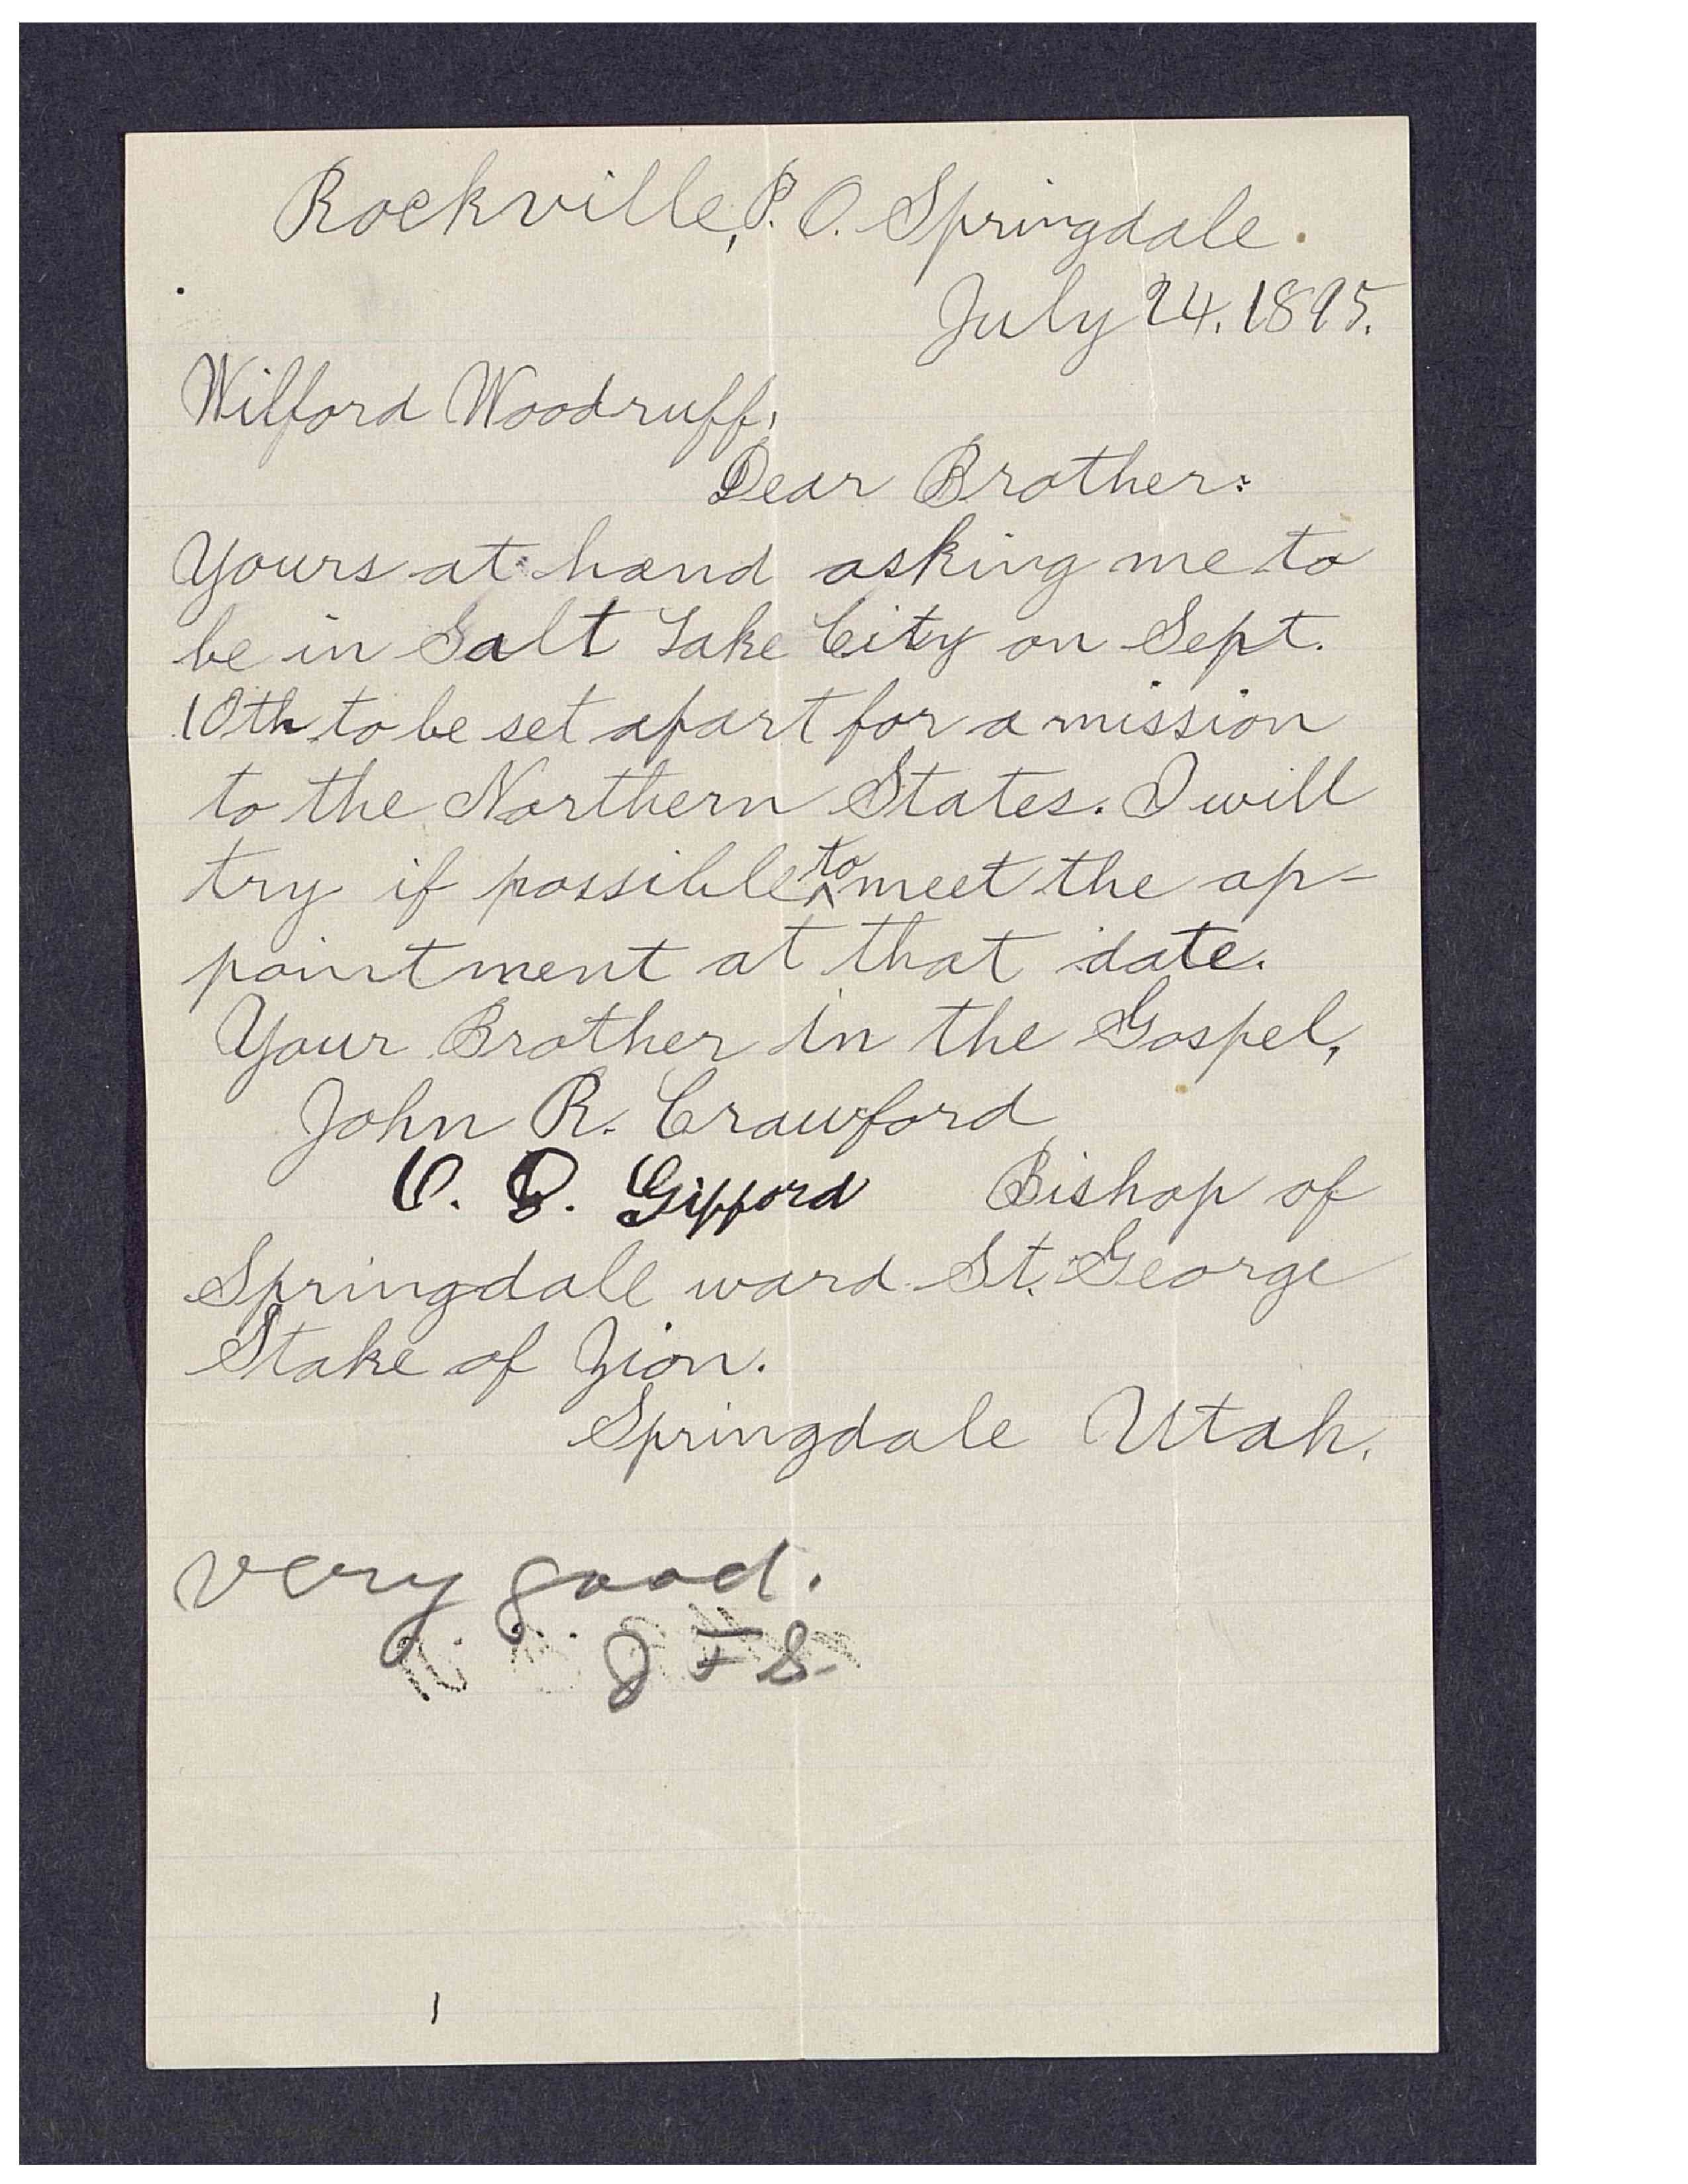 Rockville, P. O. Springdale.
July 24. 1895.
Wilford Woodruff,
Dear Brother:
Yours at hand asking me to
be in Salt Lake City on Sept.
10th to be set apart for a mission
to the Northern States. I will
try if possible ^to meet the ap-
pointment at that date.
Your Brother in the Gospel,
John R. Crawford
O. D. Gifford Bishop of
Springdale ward St. George
Stake of Zion.
Springdale Utah.
very good.
J F S